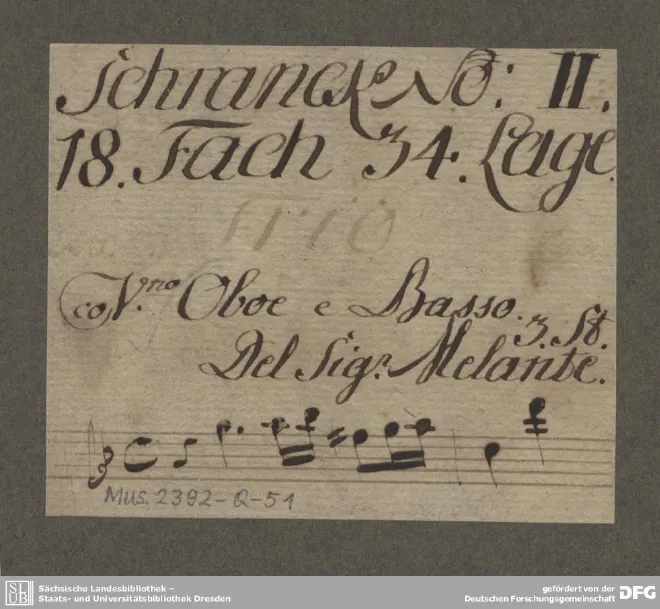 Schranck No: II.
18. Fach 34. Lage.
Trio
co V.no Oboe e Basso.
3. St.
Del Sig.r Melante.
Mus. 2392-Q-51
SLUB
Sächsische Landesbibliothek –
Staats- und Universitätsbibliothek Dresden
gefördert von der
Deutschen Forschungsgemeinschaft DFG